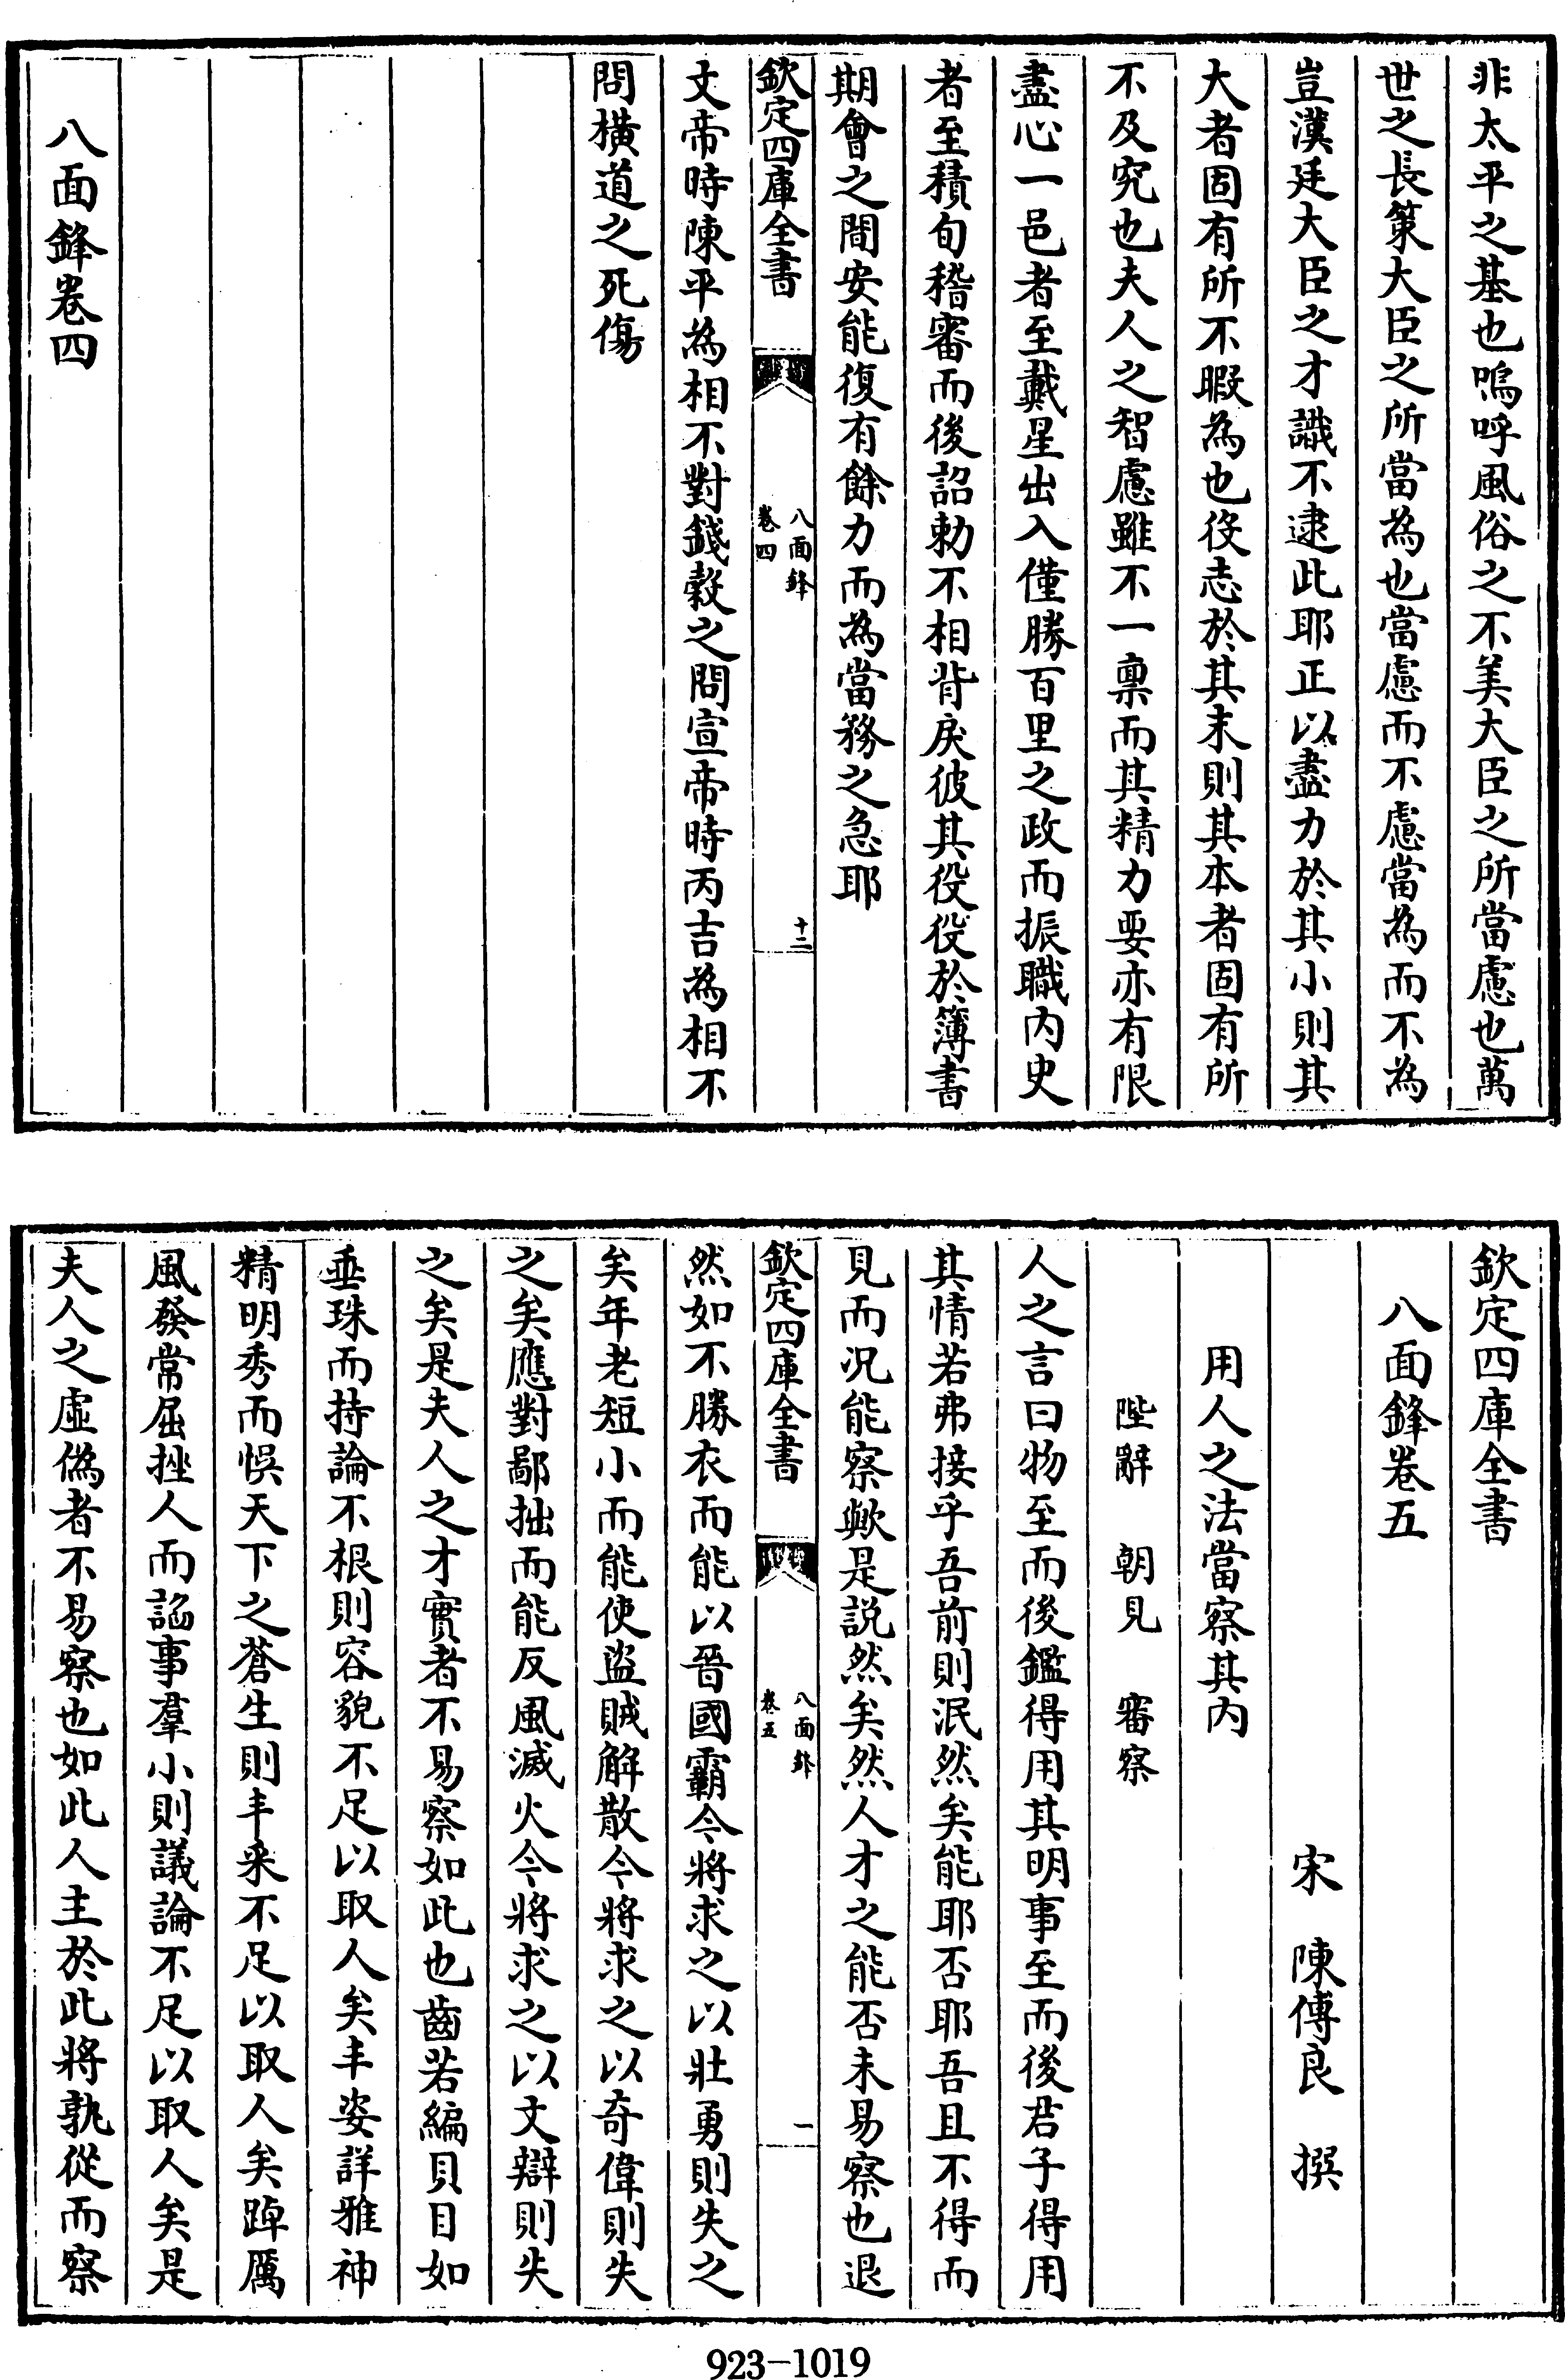 非太平之基也嗚呼風俗之不美大臣之所當慮也萬
世之長策大臣之所當為也當慮而不慮當為而不為
豈漢廷大臣之才識不逮此耶正以盡力於其小則其
大者固有所不暇為也役志於其末則其本者固有所
不及究也夫人之智慮雖不一稟而其精力要亦有限
盡心一邑者至戴星出入僅勝百里之政而振職內史
者至積旬稽審而後詔勅不相背戾彼其役役於簿書
期會之間安能復有餘力而為當務之急耶
欽定四庫全書
八面鋒
卷四
十二
文帝時陳平為相不對錢穀之問宣帝時丙吉為相不
問橫道之死傷
八面鋒卷四
欽定四庫全書
八面鋒卷五
宋 陳傅良 撰
用人之法當察其內
陛辭 朝見 審察
人之言曰物至而後鑑得用其明事至而後君子得用
其情若弗接乎吾前則泯然矣能耶否耶吾且不得而
見而况能察歟是説然矣然人才之能否未易察也退
欽定四庫全書
八面鋒
卷五
一
然如不勝衣而能以晉國霸今將求之以壯勇則失之
矣年老短小而能使盜賊解散今將求之以奇偉則失
之矣應對鄙拙而能反風滅火今將求之以文辯則失
之矣是夫人之才實者不易察如此也齒若編貝目如
垂珠而持論不根則容貌不足以取人矣丰姿詳雅神
精明秀而悞天下之蒼生則丰采不足以取人矣踔厲
風發常屈挫人而諂事羣小則議論不足以取人矣是
夫人之虛偽者不易察也如此人主於此將孰從而察
923-1019